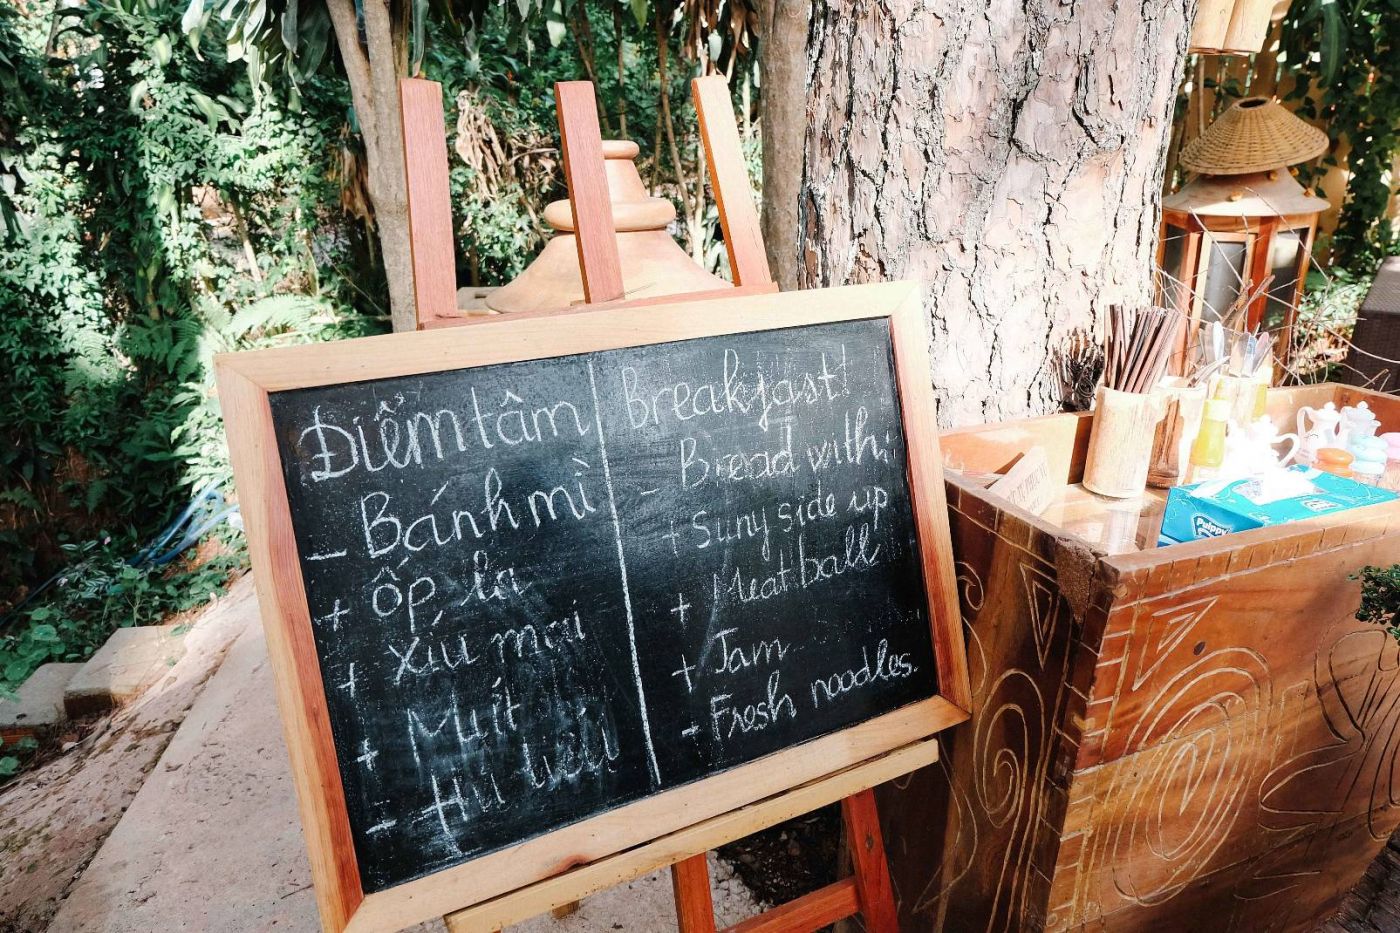 Điểm tâm
- Bánh mì
+ ốp la
+ xíu mại
+ Mứt
- Hủ tiếu
Breakfast!
- Bread with:
+ Suny side up
+ Meat ball
+ Jam
- Fresh noodles.
Pulppy